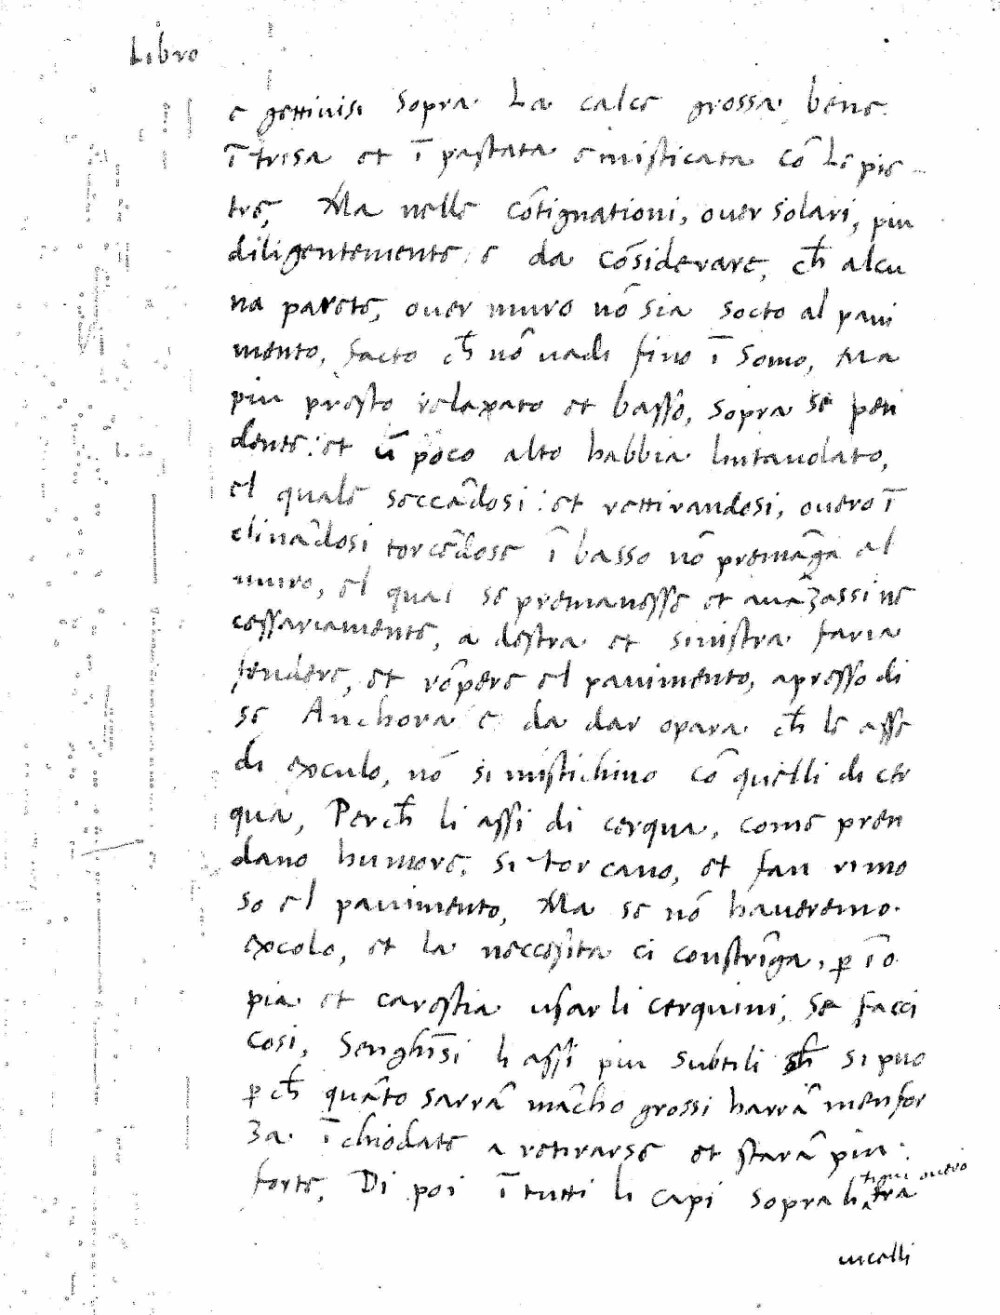 Libro
e gettivisi sopra La calce grossa bene
ī trisa et ī pastata e misticata cō Le pie
tre, Ma nelle cōtignationi, over solari, piu
diligentemente e da cōsiderare, ch̄ alcu
na parete, over muro nō sia socto al pavi
mento, facto ch̄ nō vadi fino ī somo, Ma
piu presto relaxato et basso, sopra se pen
dente: et ū poco alto habbia lintavolato,
el quale seccādosi: et rettirandosi, overo ī
clinādosi torcēdose ī basso nō premāga al
muro, el qual se premanesse et avāzassi ne
cessariamente, a destra et sinistra faria
fendere, et rōpere el pavimento, apresso di
se Anchora e da dar opara ch̄ le asse
di exculo, nō si mistichino cō quelli di cer
qua, Perch̄ li assi di cerqua, come pren
dano humore, si torcano, et fan rimo
so el pavimento, Ma se nō haveremo
excolo, et la neccessita ci constrīga, p ī o
pia et carestia usar li cerquini, se facci
cosi, Senghīsi li assi piu subtili ch̄ si puo
p ch̄ quāto sarrā mācho grossi harrā men for
za ī chiodate a retirarse et starā piu
forte, Di poi ī tutti li capi sopra li tra
tigni overo
vicelli